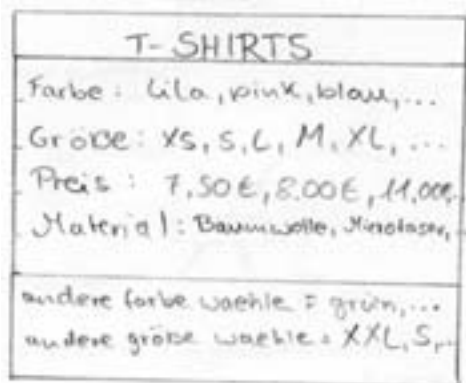 T-SHIRTS
Farbe: Lila, pink, blau, ...
Größe: XS, S, L, M, XL, ...
Preis: 7,50€, 8.00€, 11,00€
Material: Baumwolle, Microfaser,
andere farbe waehle = grün, ...
andere größe waehle = XXL, S, ..